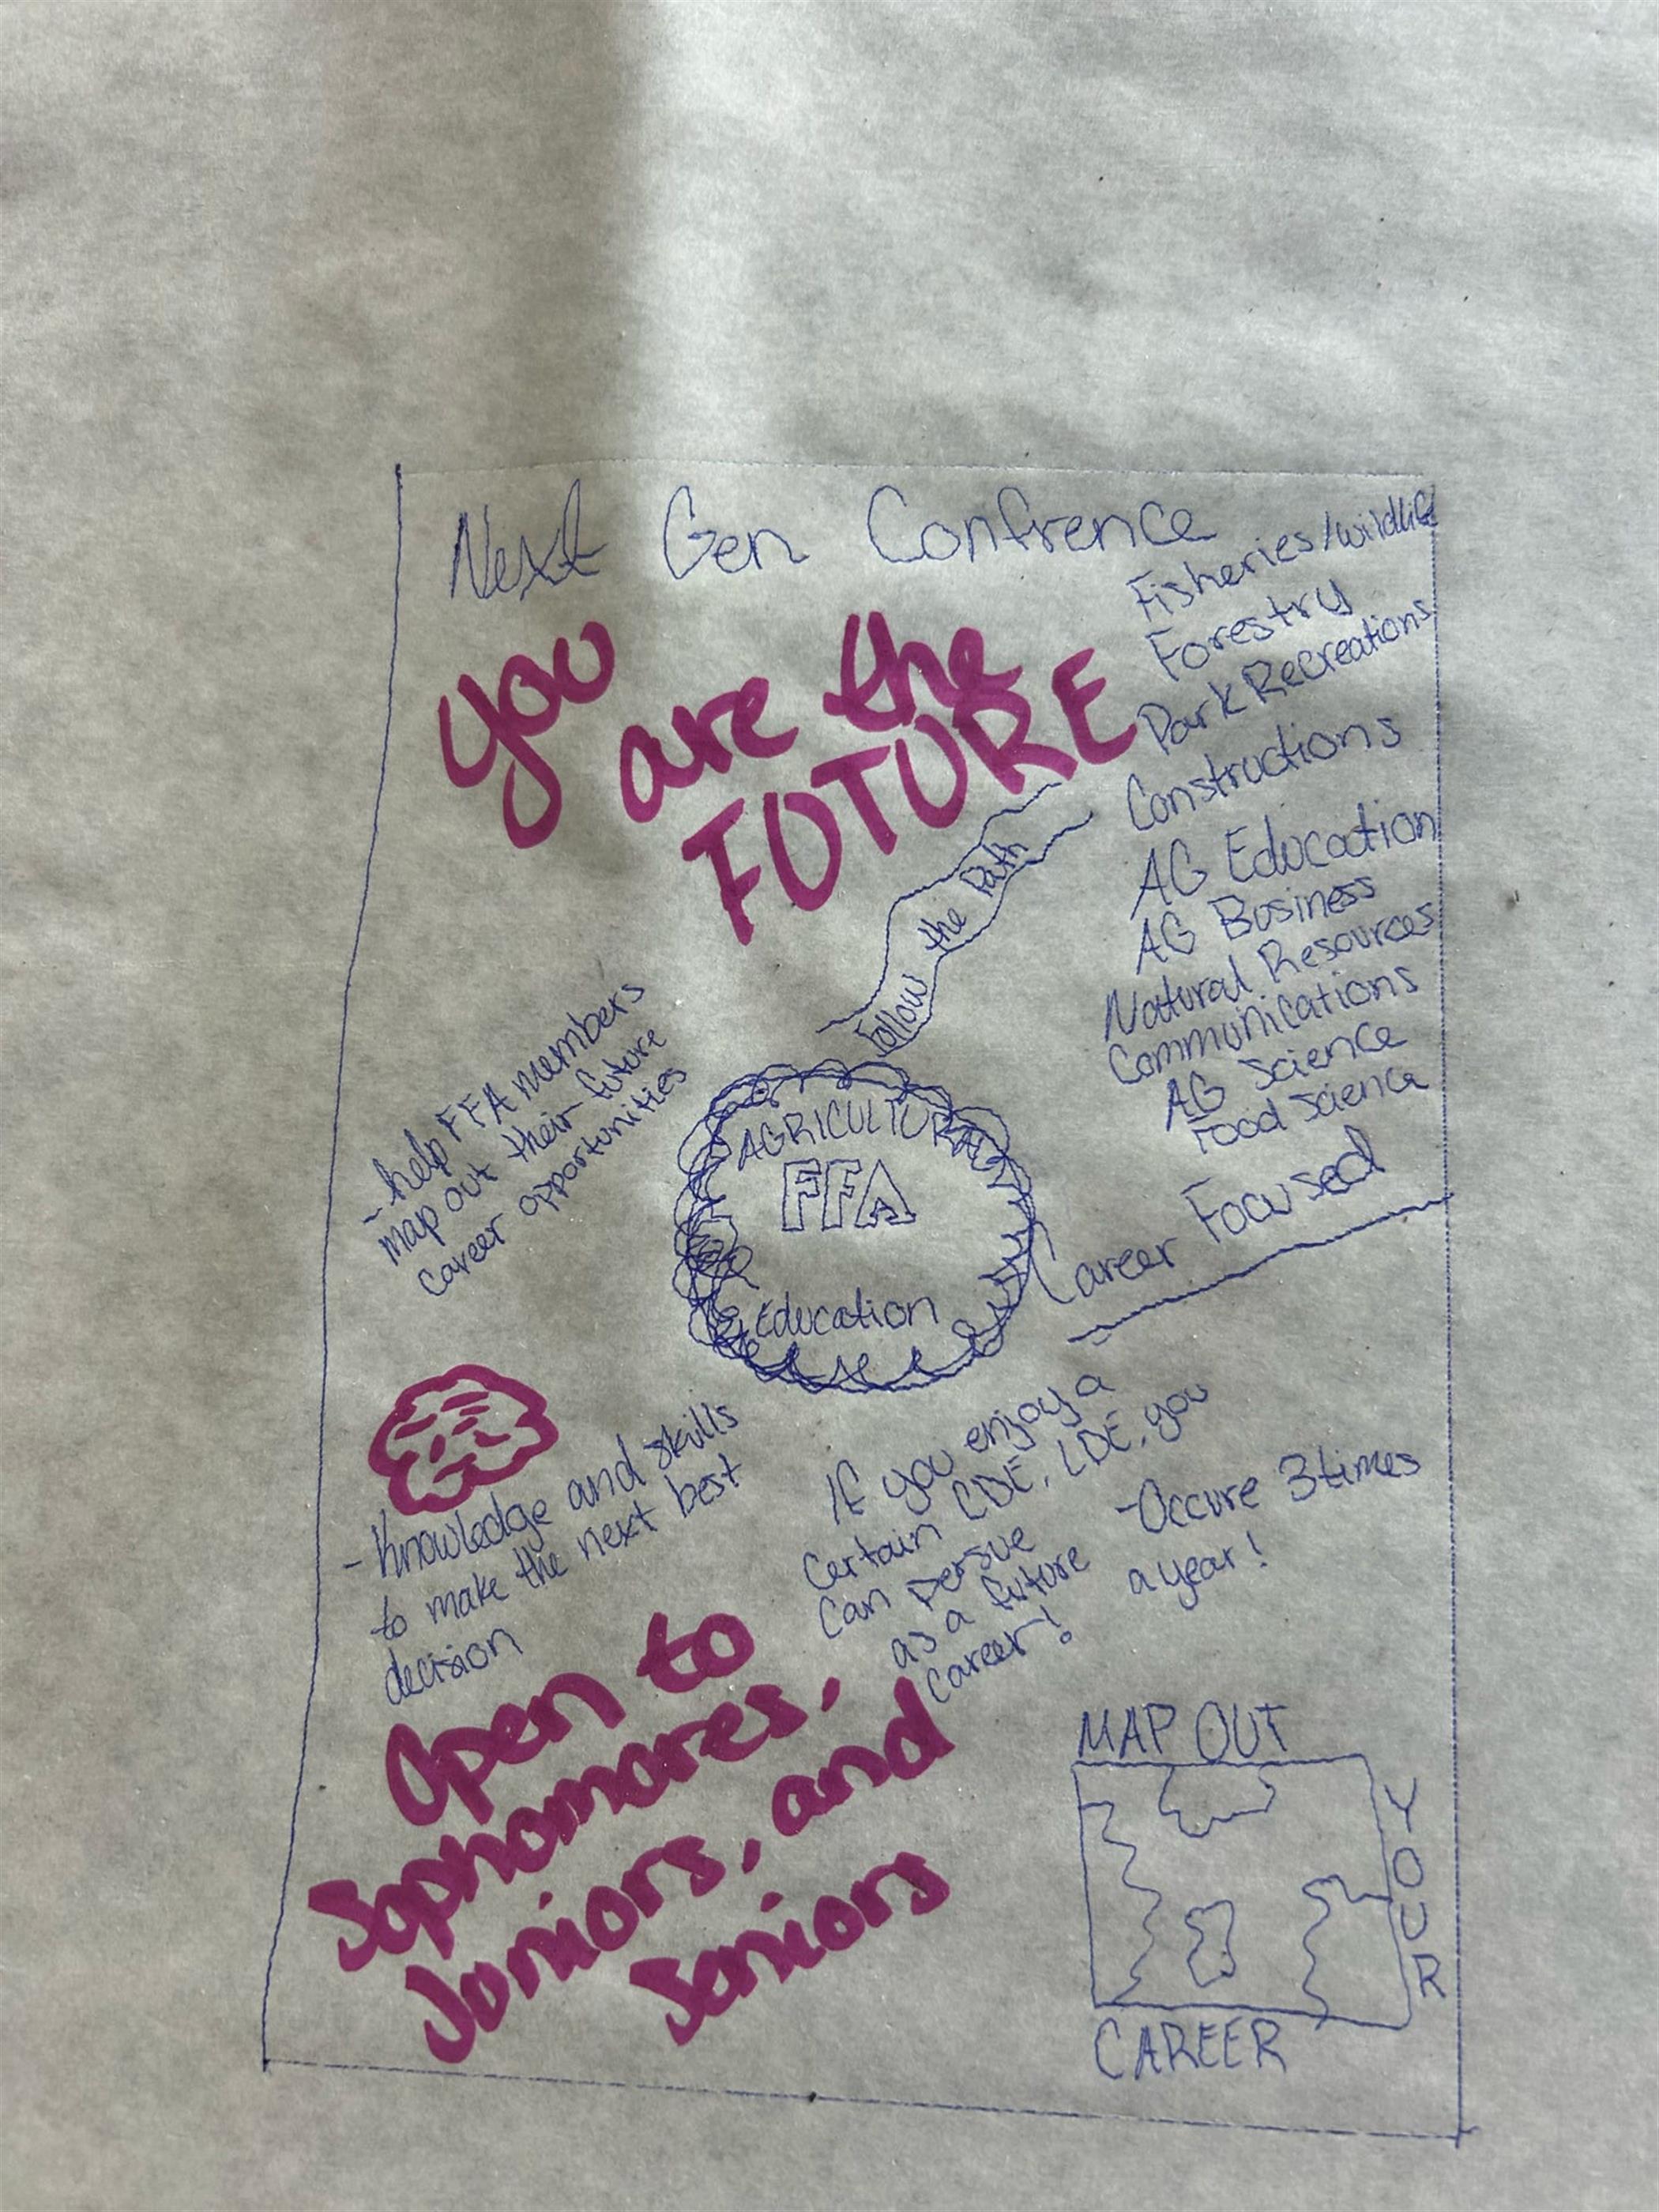 Next Gen Confrence
you
are the
FUTURE
Fisheries/wildlife
Forestry
Park Recreations
Constructions
AG Education
AG Business
Natural Resources
Communications
AG Science
Food Science
Follow the Path
-help FFA members
map out their future
career opportunities
AGRICULTURAL
FFA
Education
Career Focused
-Knowledge and skills
to make the next best
decision
If you enjoy a
certain CDE, LDE, you
can persue
as a future
career!
-Occure 3 times
a year!
Open to
Sophomores,
Juniors, and
Seniors
MAP OUT
YOUR
CAREER